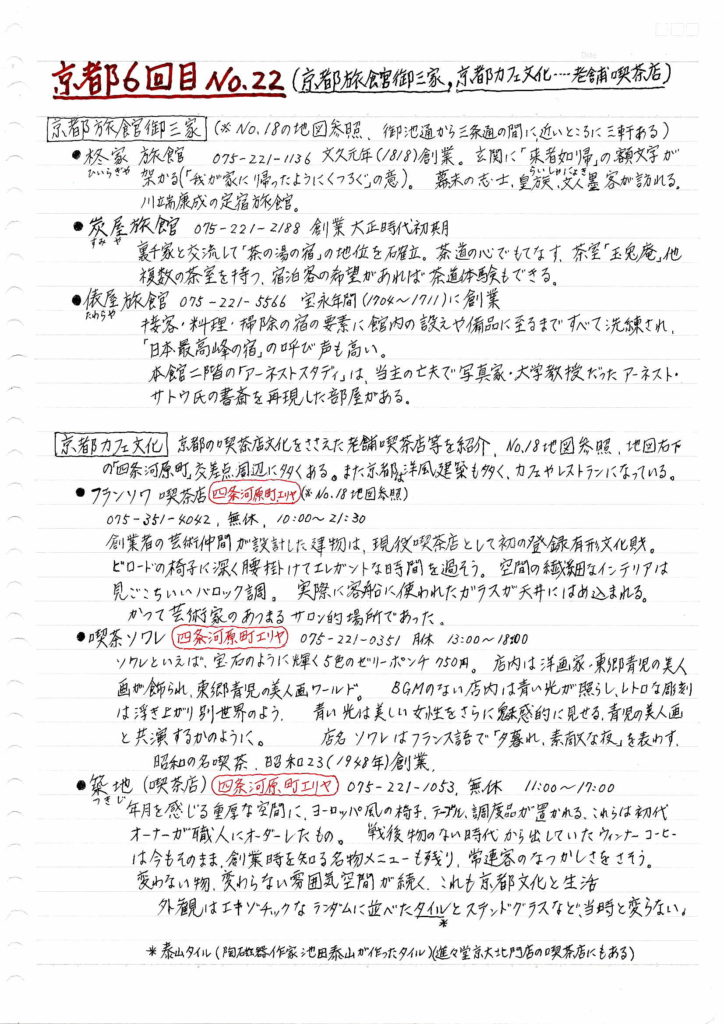 京都6回目 No.22 (京都旅館御三家, 京都カフェ文化‥‥老舗喫茶店)
京都旅館御三家 (※No.18の地図参照、御池通から三条通の間に、近いところに三軒ある)
●柊家 旅館 075-221-1136 文久元年(1818)創業。玄関に「来者如帰」の額文字が
ひいらぎや らいしゃにょき
架かる(「我が家に帰ったようにくつろぐ」の意)。幕末の志士、皇族、文人墨客が訪れる。
川端康成の定宿旅館。
●炭屋旅館 075-221-2188 創業 大正時代初期
すみや
裏千家と交流して「茶の湯の宿」の地位を確立。茶道の心でもてなす、茶室「玉兎庵」他
複数の茶室を持つ、宿泊客の希望があれば茶道体験もできる。
●俵屋旅館 075-221-5566 宝永年間(1704〜1711)に創業
たわらや
接客・料理・掃除の宿の要素に館内の設えや備品に至るまですべて洗練され、
「日本最高峰の宿」の呼び声も高い。
本館二階の「アーネストスタディ」は、当主の亡夫で写真家・大学教授だったアーネスト・
サトウ氏の書斎を再現した部屋がある。
京都カフェ文化 京都の喫茶店文化をささえた老舗喫茶店等を紹介、No.18地図参照、地図右下
の「四条河原町」交差点周辺に多くある。また京都は洋風建築も多く、カフェやレストランになっている。
●フランソワ喫茶店 四条河原町エリヤ (※No.18地図参照)
075-351-4042, 無休, 10:00〜21:30
創業者の芸術仲間が設計した建物は、現役喫茶店として初の登録有形文化財。
ビロードの椅子に深く腰掛けてエレガントな時間を過そう。空間の繊細なインテリアは
見ごこちいいバロック調。実際に客船に使われたガラスが天井にはめ込まれる。
かつて芸術家のあつまるサロン的場所であった。
●喫茶ソワレ 四条河原町エリヤ 075-221-0351 月休 13:00〜18:00
ソワレといえば、宝石のように輝く5色のゼリーポンチ750円。店内は洋画家・東郷青児の美人
画が飾られ、東郷青児の美人画ワールド。BGMのない店内は青い光が照らし、レトロな彫刻
は浮き上がり別世界のよう、青い光は美しい女性をさらに魅惑的に見せる、青児の美人画
と共演するかのように。店名ソワレはフランス語で「夕暮れ、素敵な夜」を表わす、
昭和の名喫茶、昭和23(1948年)創業、
●築地(喫茶店) 四条河原町エリヤ 075-221-1053, 無休 11:00〜17:00
つきじ
年月を感じる重厚な空間に、ヨーロッパ風の椅子、テーブル、調度品が置かれる、これらは初代
オーナーが職人にオーダーしたもの。戦後物のない時代から出していたウィンナーコーヒー
は今もそのまま、創業時を知る名物メニューも残り、常連客のなつかしさをさそう。
変わない物、変わらない雰囲気空間が続く、これも京都文化と生活
外観はエキゾチックなランダムに並べたタイルとステンドグラスなど、当時と変らない。
*
*泰山タイル(陶磁器作家池田泰山が作ったタイル)(進々堂京大北門店の喫茶店にもある)